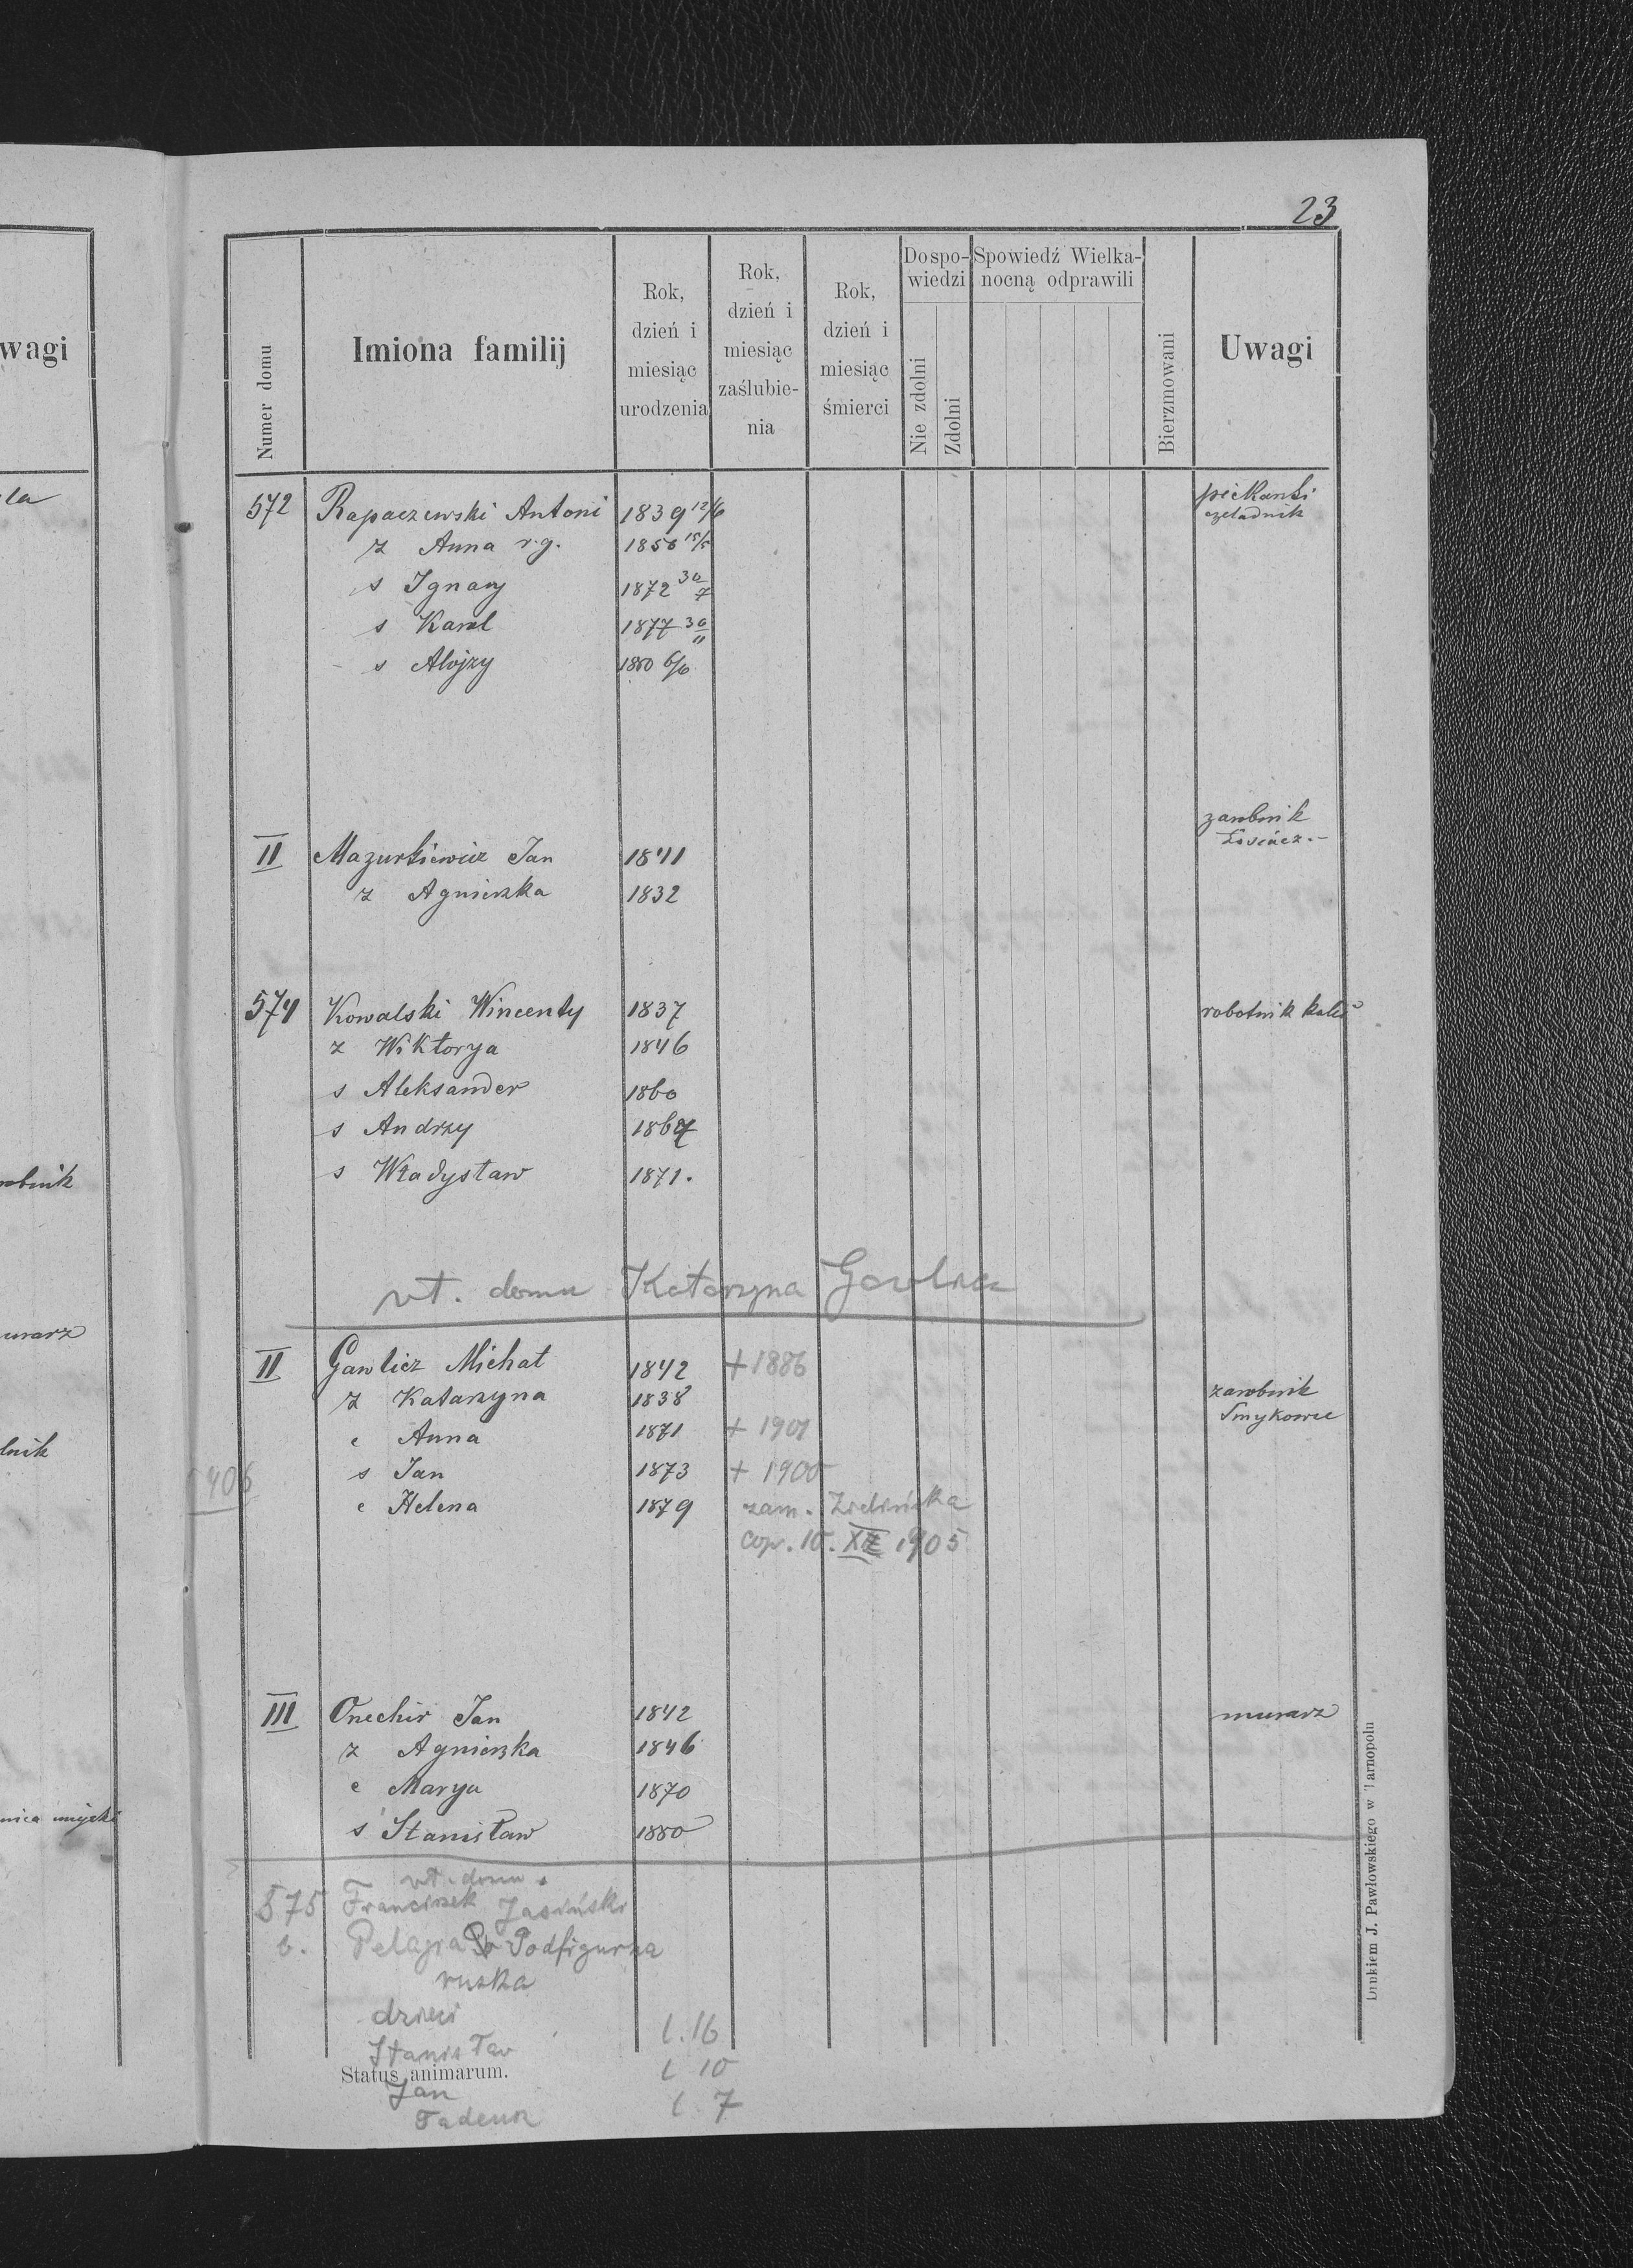 wagi
la
robnik
urarz
lnik
nica miejski
23
Numer domu
Imiona familij
Rok, dzień i miesiąc urodzenia
Rok, dzień i miesiąc zaślubie-nia
Rok, dzień i miesiąc śmierci
Do spo-wiedzi
Nie zdolni
Zdolni
Spowiedź Wielka-nocną odprawili
Bierzmowani
Uwagi
572 Rapaczewski Antoni 1839 12/6 piekarski
czeladnik
ż Anna r.g. 1850 15/5
s Ignacy 1872 30/7
s Karol 1877 30/11
s Alojzy 1880 6/6
zarobnik
II Mazurkiewicz Jan 1841
ż Agnieszka 1832
574 Kowalski Wincenty 1837 robotnik kolej
ż Wiktorya 1846
s Aleksander 1860
s Andrzy
s Władysław 1871.
wł. domu Katarzyna Gawlicz
II Gawlicz Michał 1842 + 1886
ż Katarzyna 1838 zarobnik
Smykowce
c Anna 1871 + 1901
406 s Jan 1873 + 1900
c Helena 1879 zam. Zielińska
cop. 10. 1905
III Onechir Jan 1842 murarz
ż Agnieszka 1846
c Marya 1870
s Stanisław 1880
wł. domu
575 Franciszek Jasiński
b. Pelagia Podfigurna
ruska
dzieci
Stanisław l. 16
Status animarum.
Jan l 10
Tadeusz l. 7
Drukiem J. Pawłowskiego w Tarnopolu